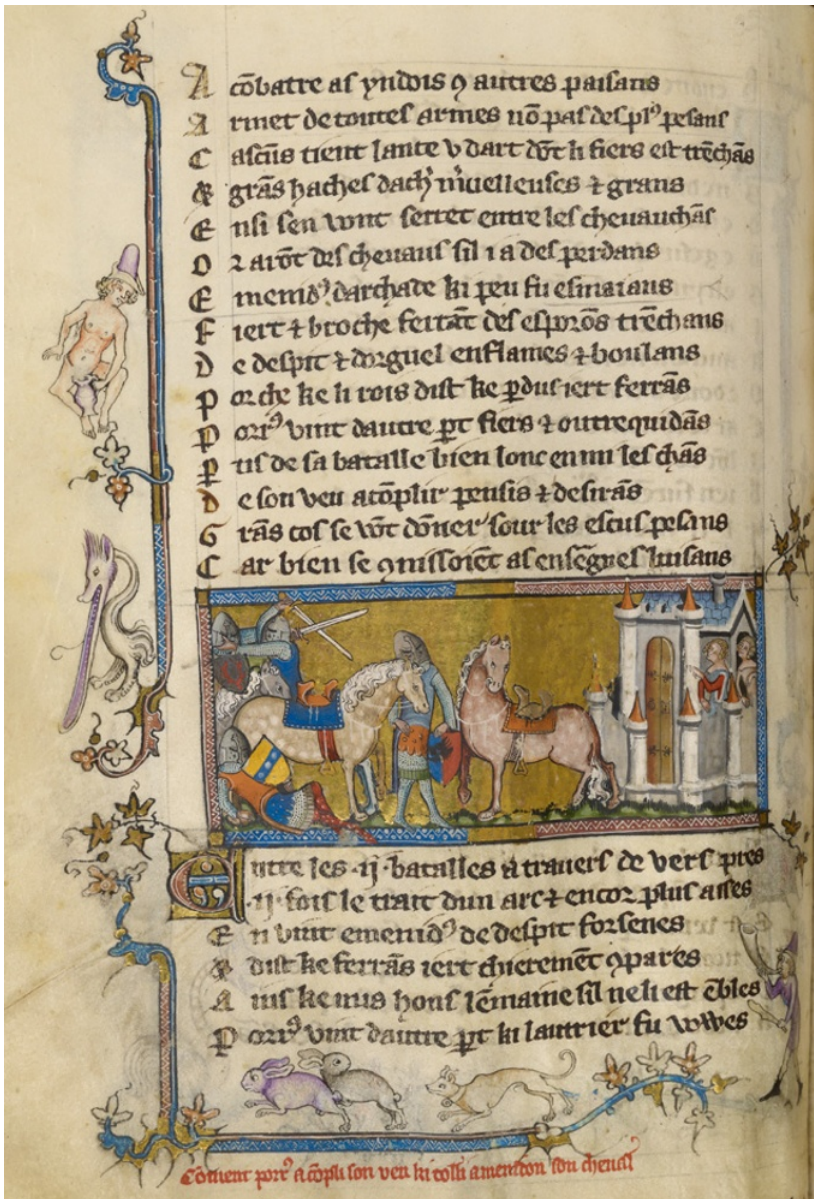 A cōbatre as yndois ꝯ autres paisans
A rmet de toutes armes nō pas des plꝰ pesans
C ascūs tient lance v dart dōt li fiers est trēchās
& grās haches dachꝭ mꝰuelleuses ⁊ grans
E nsi sen vont serret entre les cheuauchās
O r arōt des cheuaus sil i a des perdans
E menidꝰ darchade ki peu fu esmaians
F iert ⁊ broche ferrāt des esporōs trēchans
D e despit ⁊ dorguel enflames ⁊ boulans
P or che ke li rois dist ke ꝑdus iert ferrās
P orrꝰ vint dautre ꝑt fiers ⁊ outrequidās
P tis de sa batalle bien lonc en mi les chās
D e son veu acōplir pensis ⁊ desirās
G rās cos se vōt dōner sour les escus pesans
C ar bien se ꝯnissoiēt as ensēgnes luisans
E ntre les ·ij· batalles a trauers de vers pres
·ij· fois le trait dun arc ⁊ encor plus asses
E n vint emenidꝰ de despit forsenes
& dist ke ferrās iert chieremēt ꝯpares
A ins ke nus hons lēmaine sil ne li est ēbles
P orrꝰ vint dautre ꝑt ki lautrier fu vowes
Cōment porrꝰ acōpli son veu ki tolli amenidon son cheual